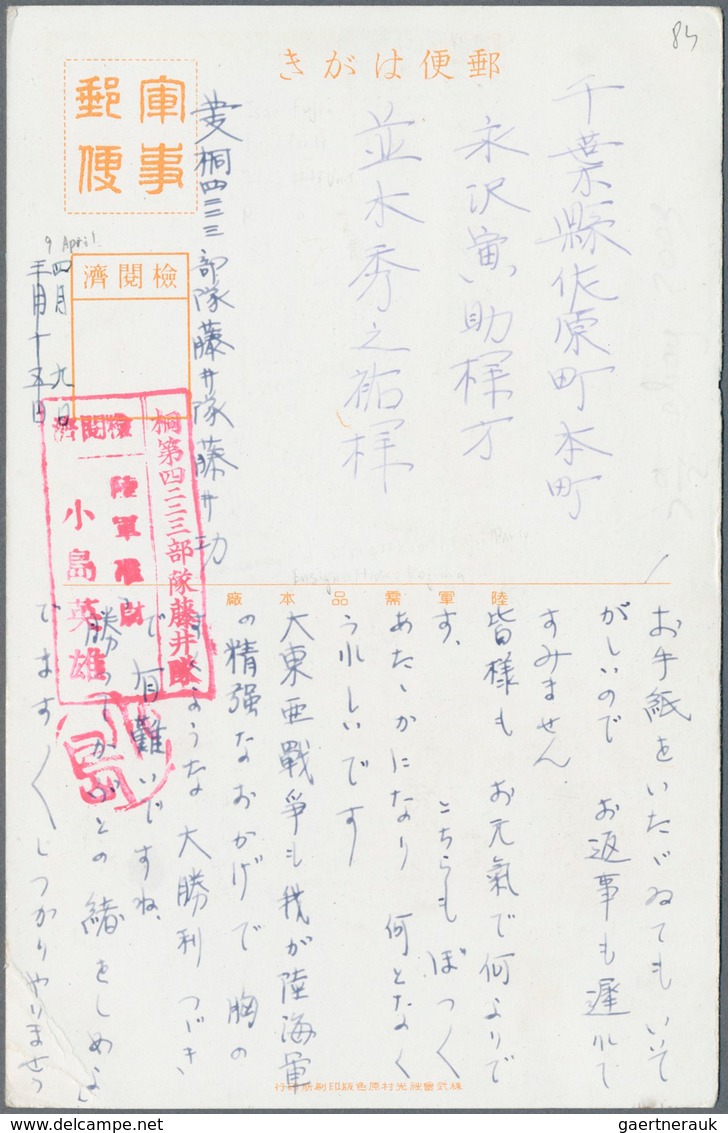 84
郵便はがき
軍事
郵便
千葉縣佐原町本町
永沢寅助様方
並木秀之祐様
桐四二二三部隊藤井隊藤井功
9 April
檢閲濟
四月九日
三月十五日
桐第四二二三部隊藤井隊
檢閲濟
陸軍
小島英雄
小島
陸軍需品本廠
お手紙をいたゞゐてもいそ
がしいので お返事も遅れて
すみません
皆様も お元氣で何よりで
す、 こちらもぼつ〱
あたゝかになり 何となく
うれしいです
大東亜戰爭も我が陸海軍
の精强なおかげで 胸の
すくような 大勝利 つゞき
で有難いですね、
勝つてかぶとの緒をしめよ
でます〱しつかりやりませう
株式會社光村原色版印刷所印行
gaertnerauk